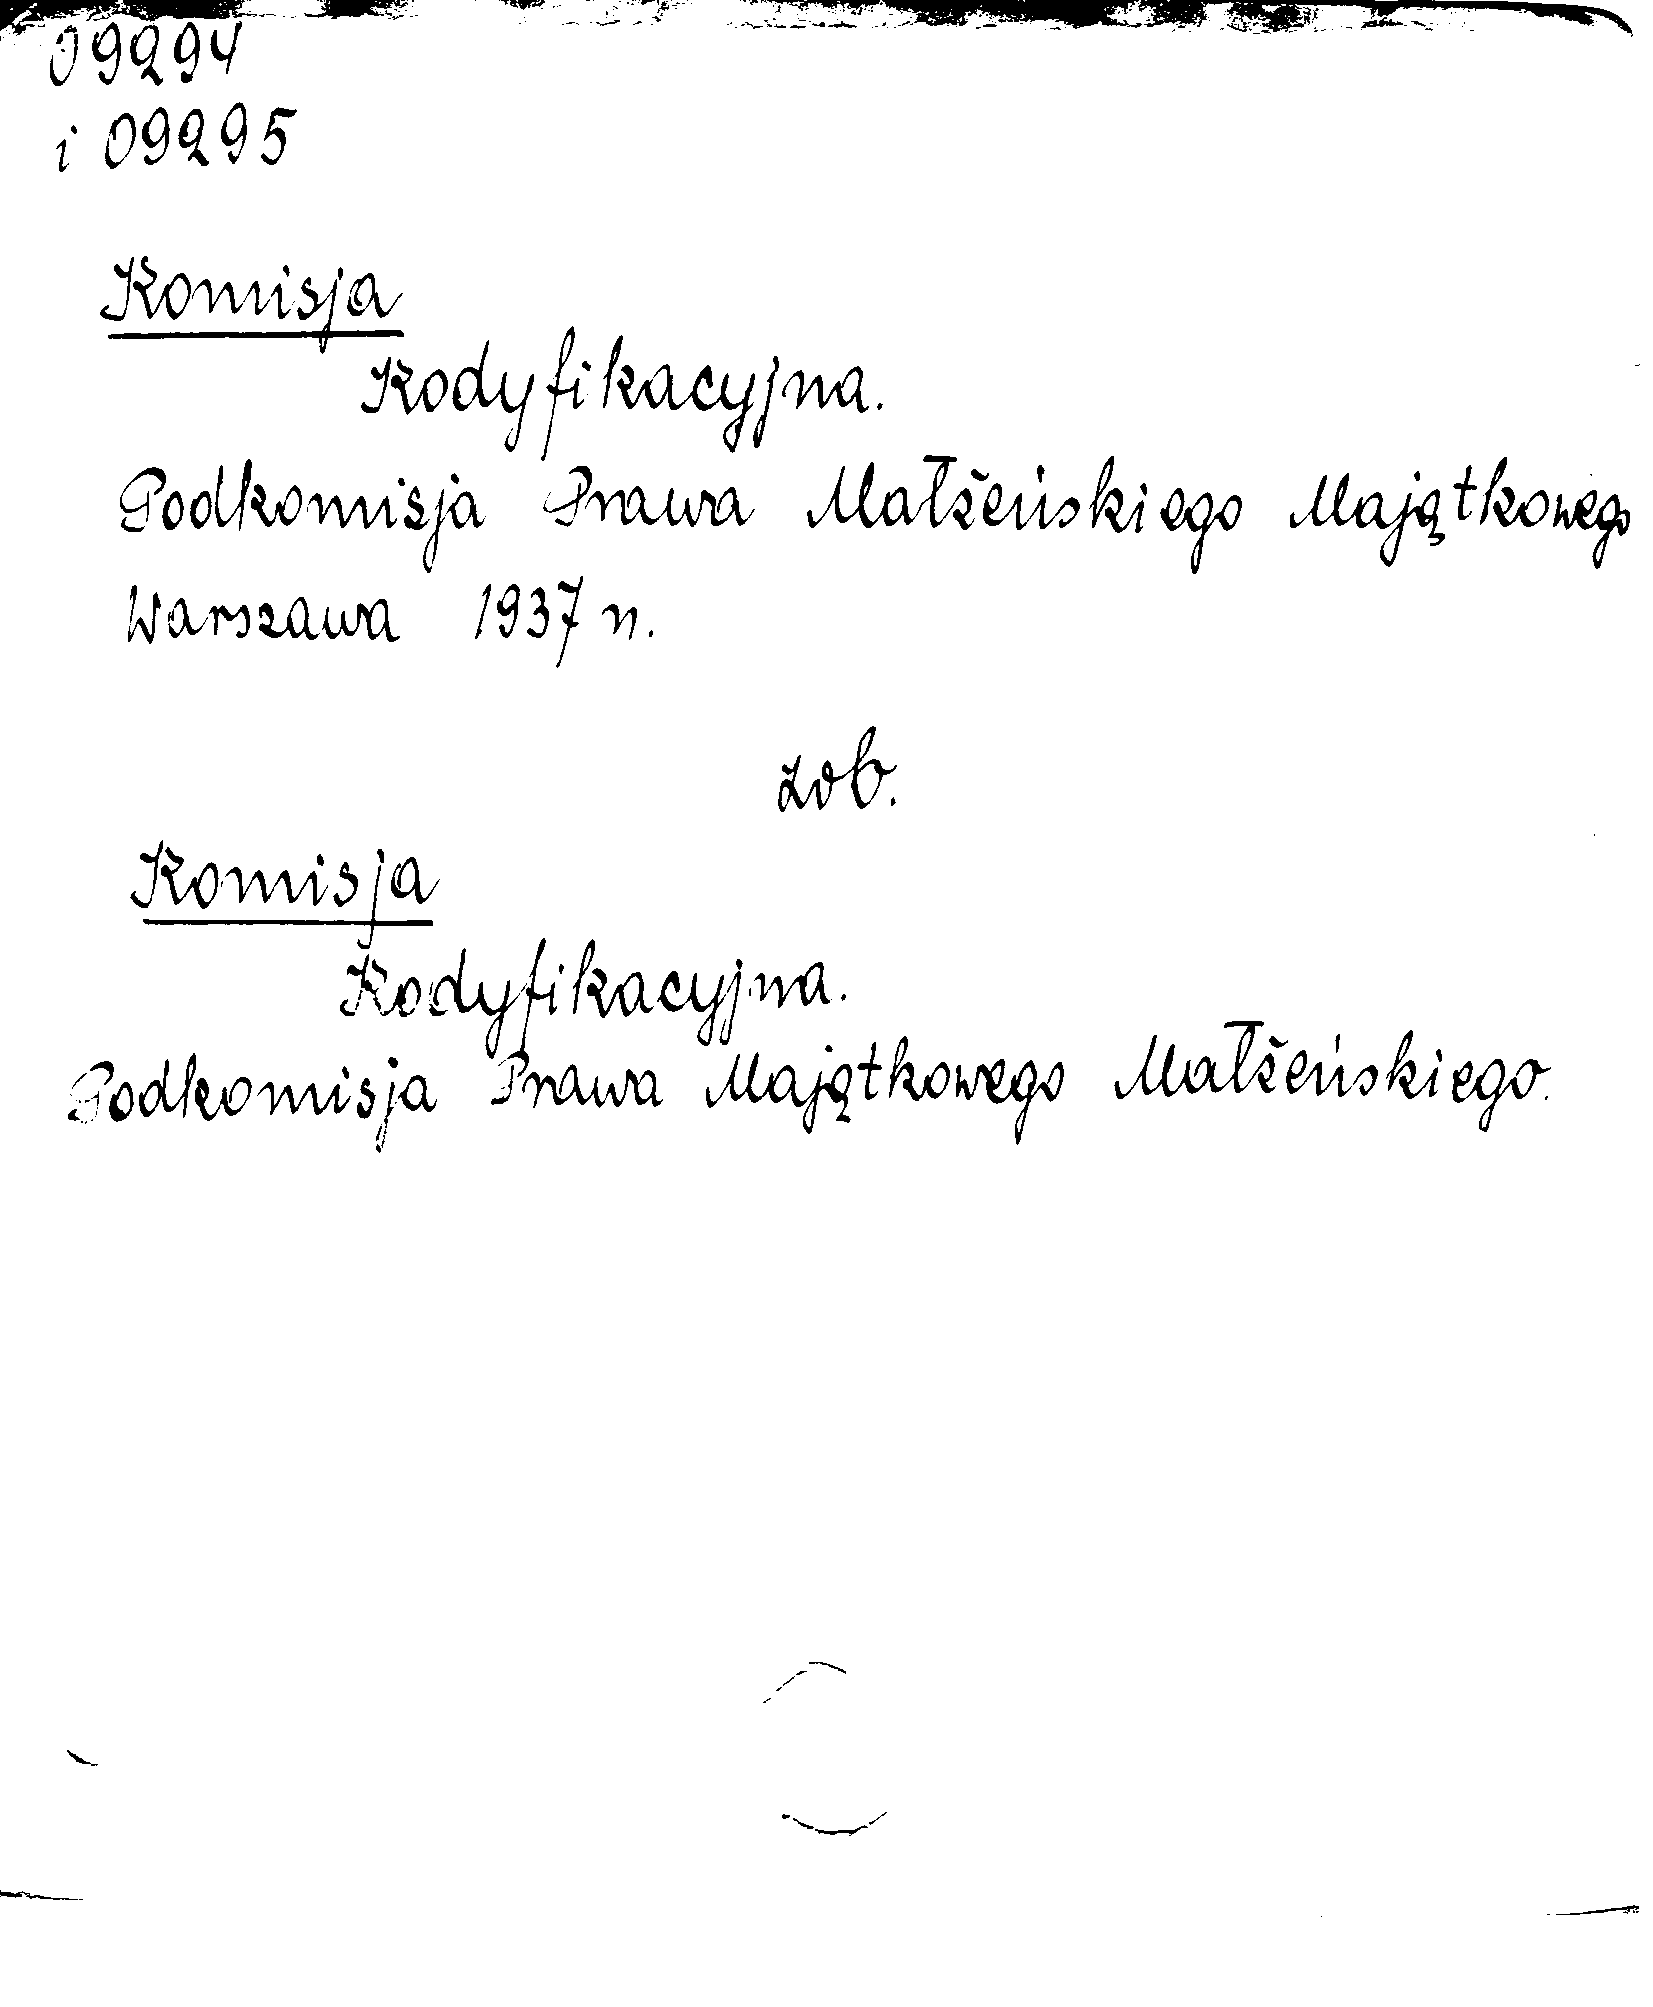 09294
i 09295
Komisja
Kodyfikacyjna.
Podkomisja Prawa Małżeńskiego Majątkowego
Warszawa 1937 r.
zob.
Komisja
Kodyfikacyjna.
Podkomisja Prawa Majątkowego Małżeńskiego.